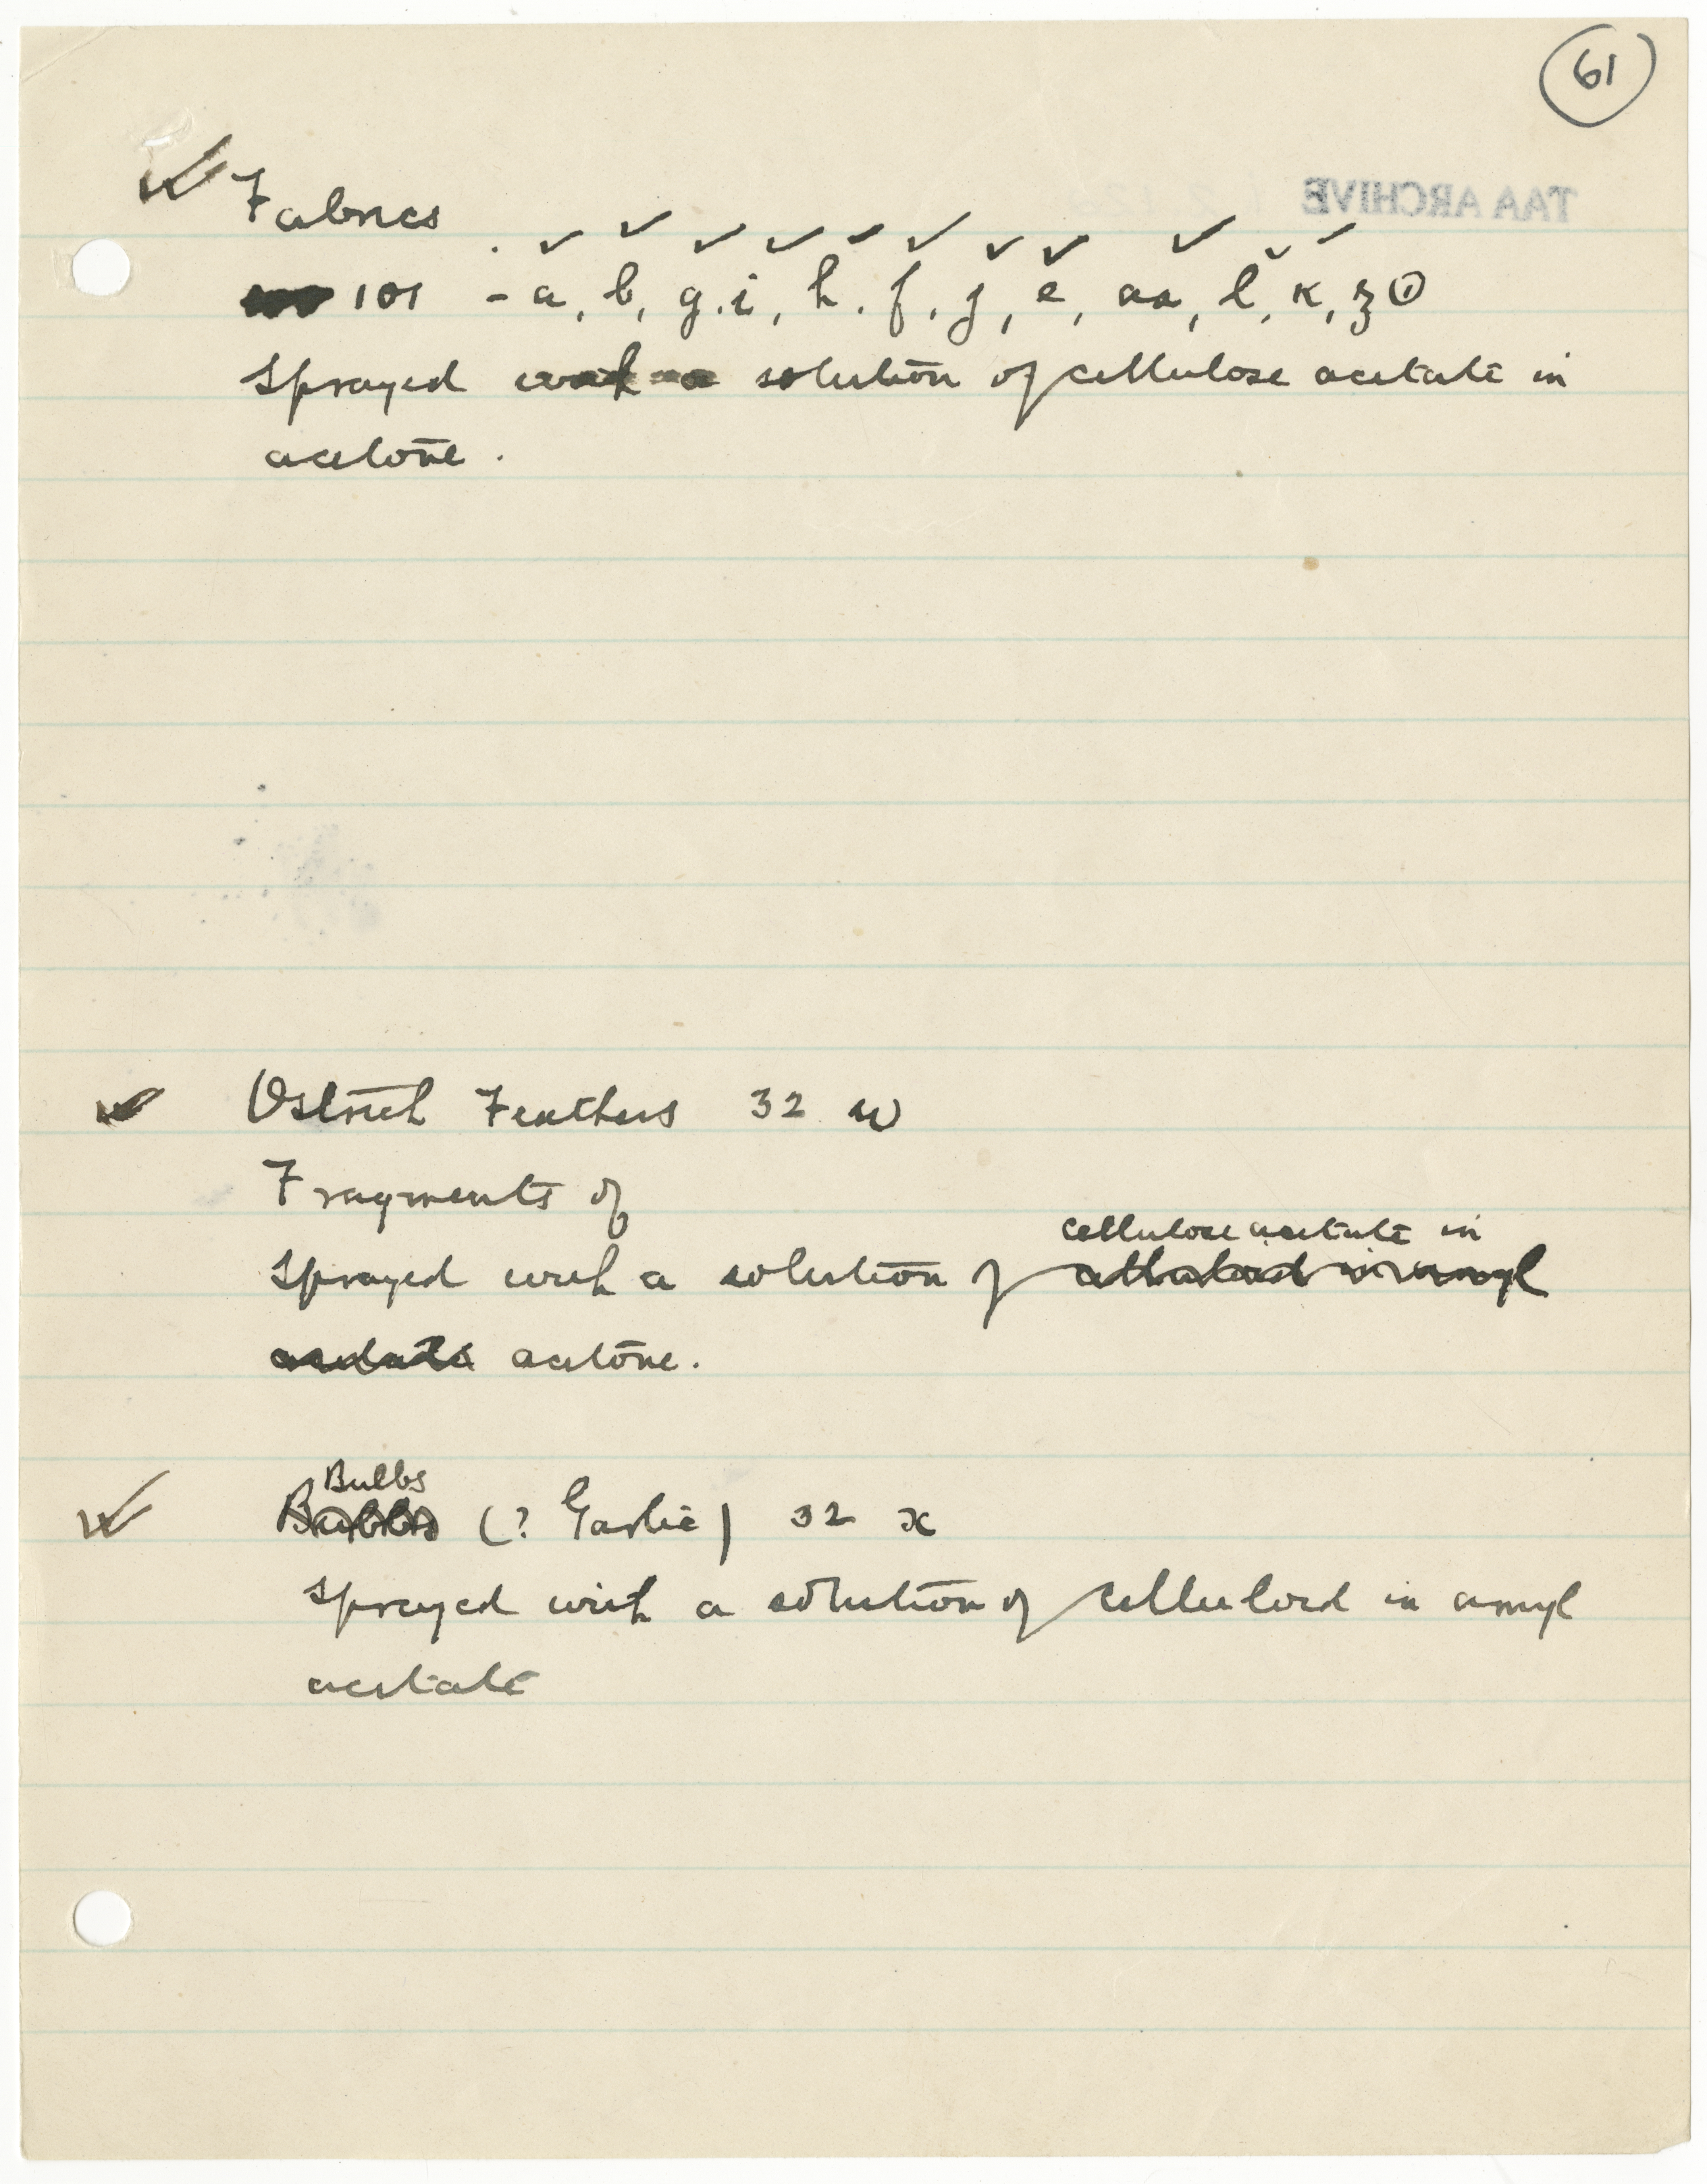 61
TAA ARCHIVE
Fabrics
101 - a, b, g. i, h. f, j, e, aa, l, k, z ①
Sprayed with a solution of cellulose acetate in
acetone.
Ostrich Feathers 32 w
Fragments of
cellulose acetate in
Sprayed with a solution of celluloid in amyl
acetate acetone.
Bulbs
Bulbs (? Garlic) 32 x
Sprayed with a solution of celluloid in amyl
acetate